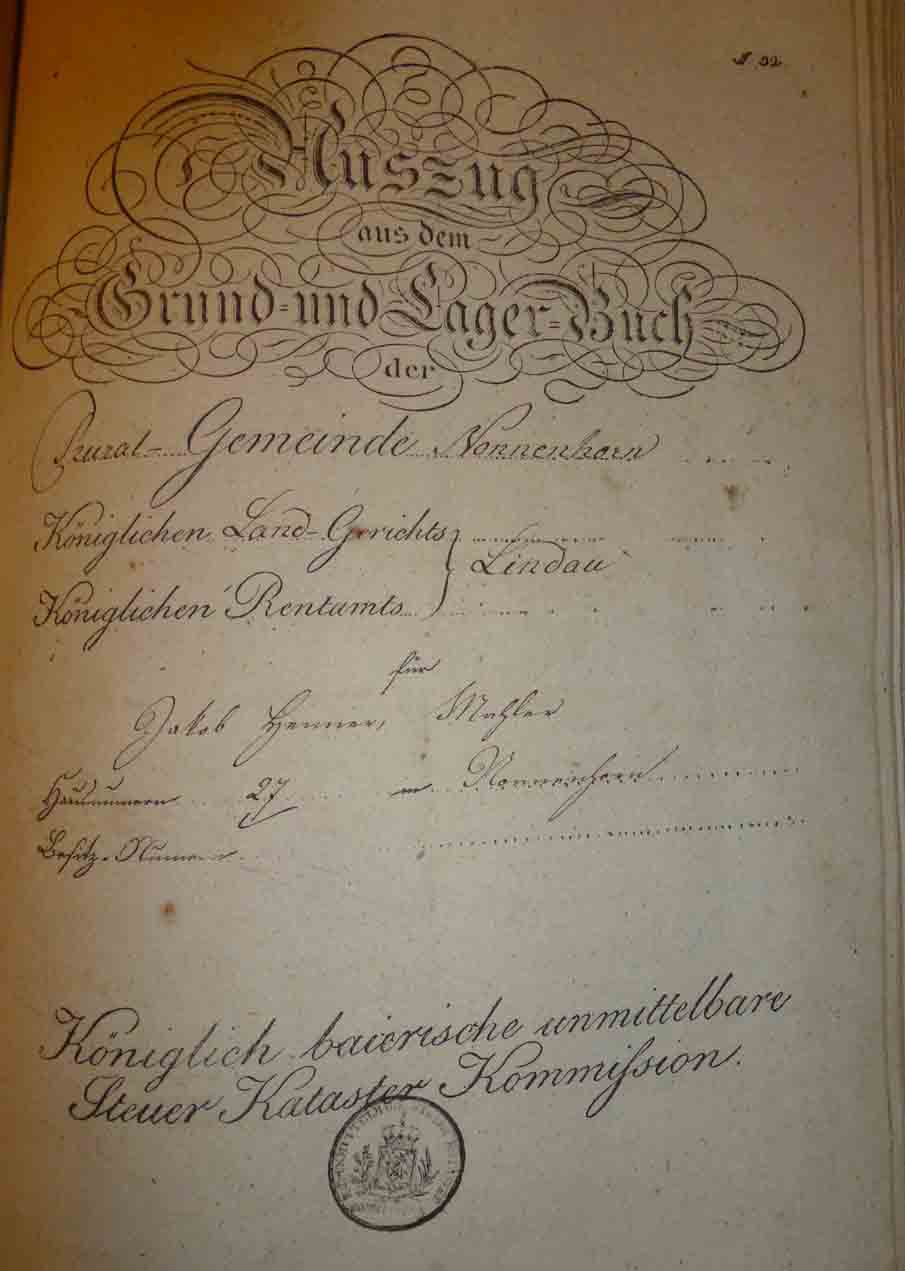 32
Auszug
aus dem
Grund- und Lager-Buch
der
Rural-Gemeinde Nonnenhorn
Königlichen Land-Gerichts
Lindau
Königlichen Rentamts
für
Jakob Henner, Mahler
Hausnumern 27 in Nonnenhorn
Besitz-Numern
Königlich baierische unmittelbare
Steuer Kataster Kommißion.